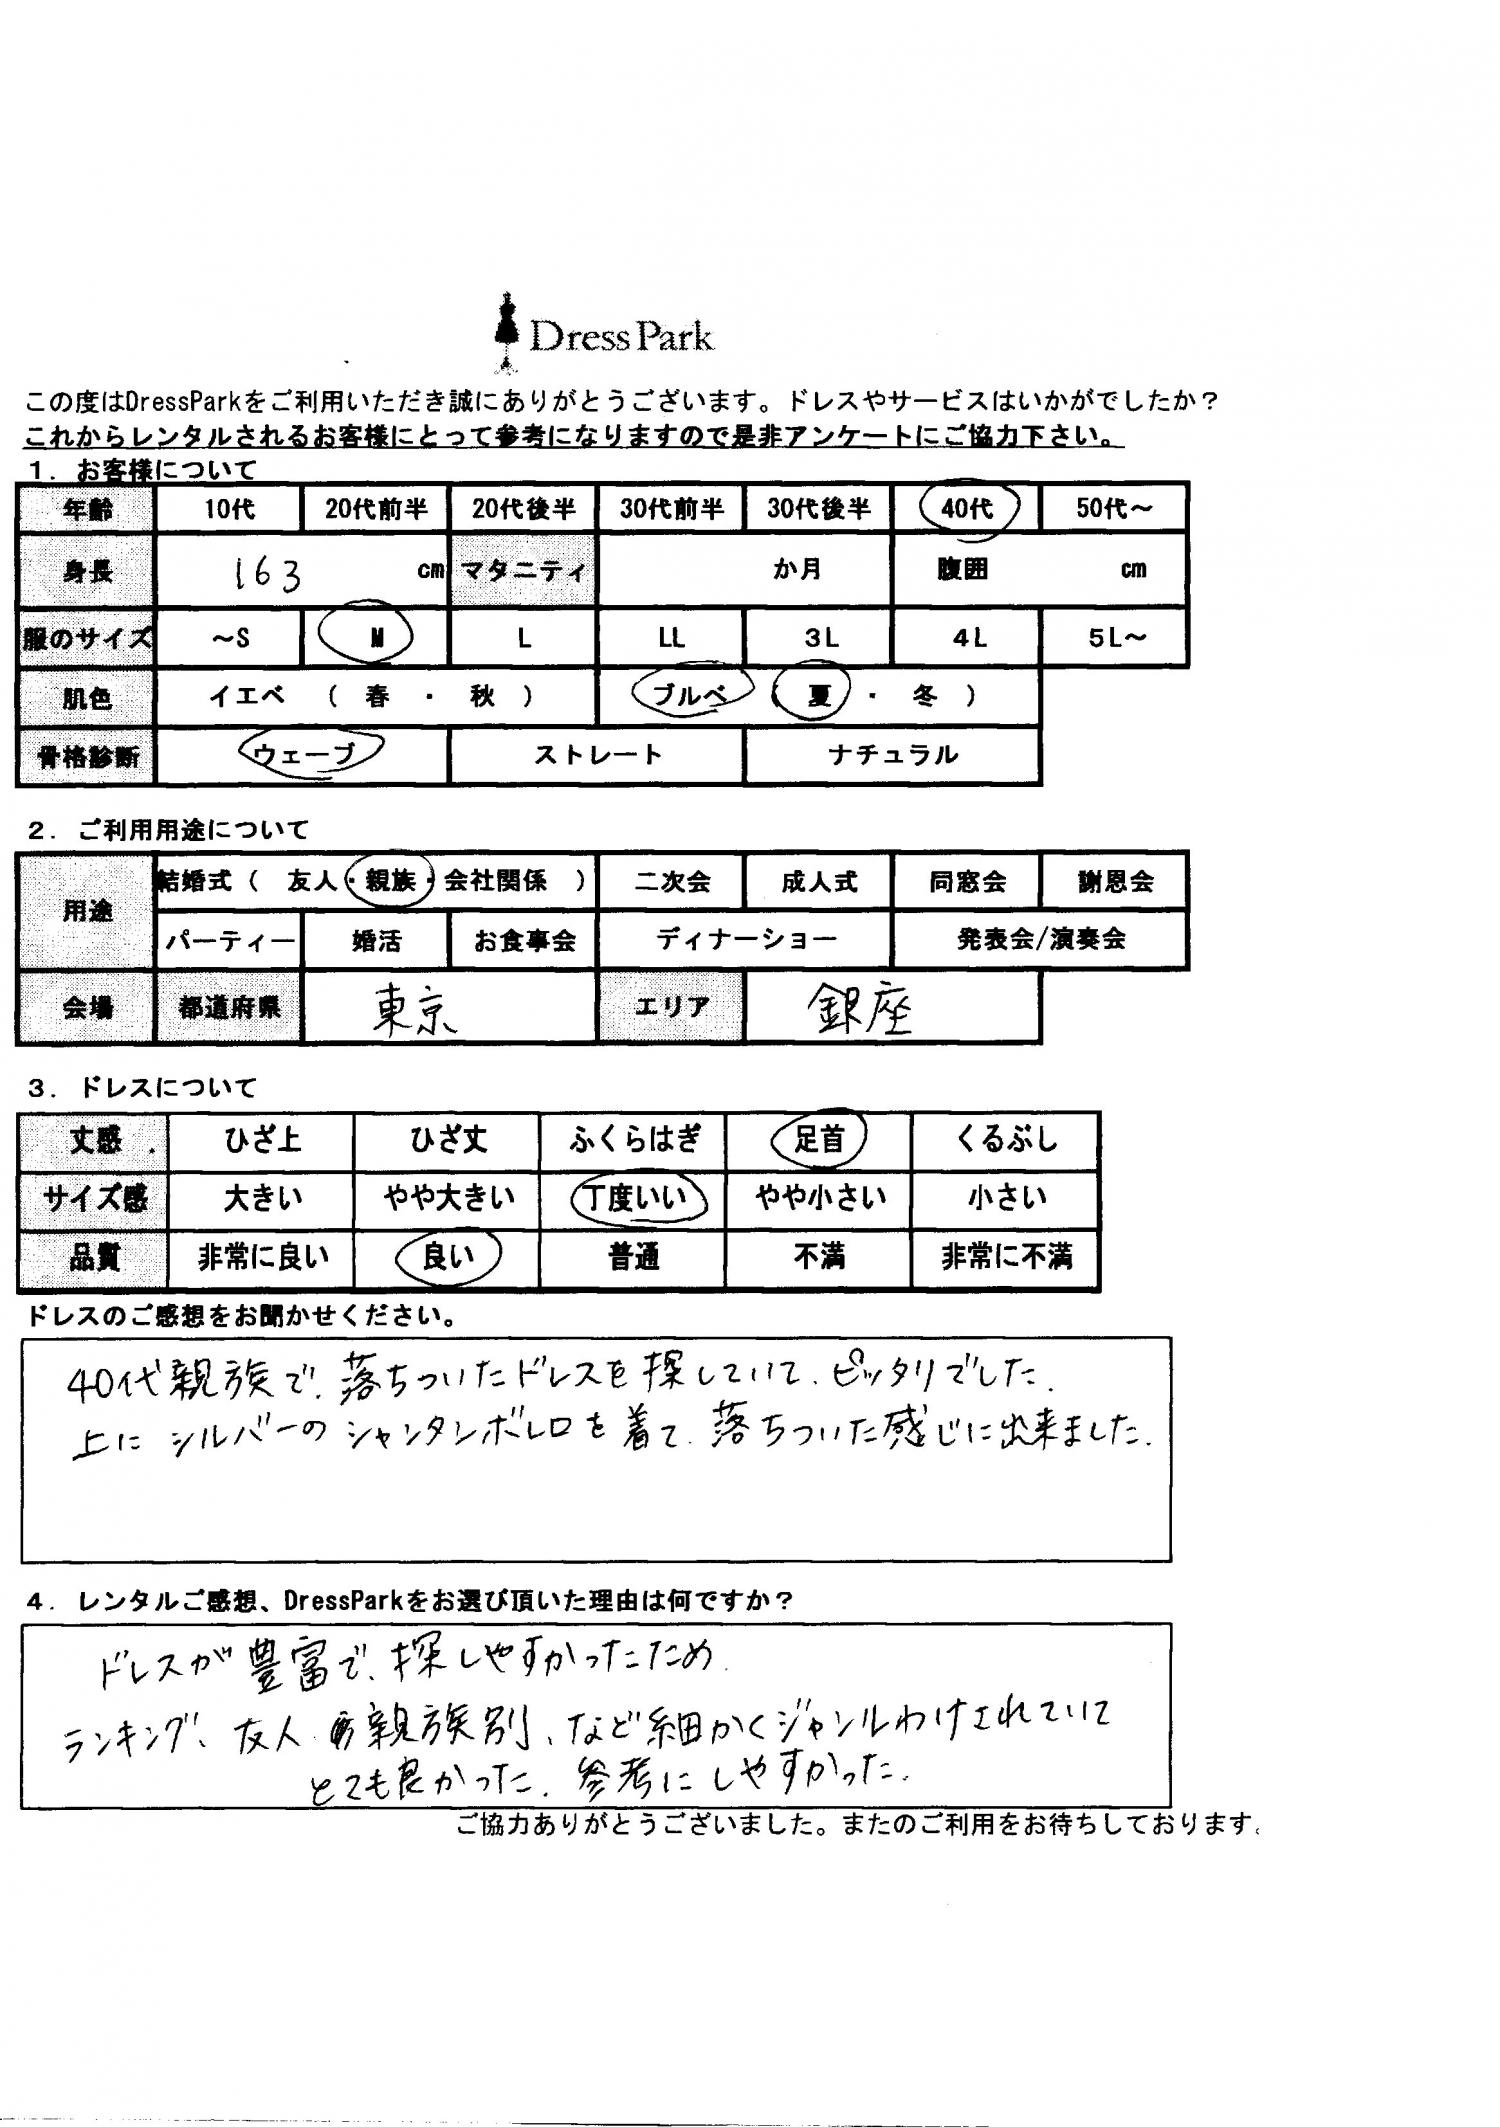 DressPark
この度はDressParkをご利用いただき誠にありがとうございます。ドレスやサービスはいかがでしたか？
これからレンタルされるお客様にとって参考になりますので是非アンケートにご協力下さい。
1. お客様について
年齢 10代 20代前半 20代後半 30代前半 30代後半 40代 50代～
身長 163 cm マタニティ か月 腹囲 cm
服のサイズ ～S M L LL 3L 4L 5L～
肌色 イエベ （ 春 ・ 秋 ） ブルベ （ 夏 ・ 冬 ）
骨格診断 ウェーブ ストレート ナチュラル
2. ご利用用途について
用途 結婚式（ 友人・親族・会社関係 ） 二次会 成人式 同窓会 謝恩会
パーティー 婚活 お食事会 ディナーショー 発表会/演奏会
会場 都道府県 東京 エリア 銀座
3. ドレスについて
丈感 ひざ上 ひざ丈 ふくらはぎ 足首 くるぶし
サイズ感 大きい やや大きい 丁度いい やや小さい 小さい
品質 非常に良い 良い 普通 不満 非常に不満
ドレスのご感想をお聞かせください。
40代親族で、落ちついたドレスを探していて、ピッタリでした.
上に シルバーの シャンタンボレロを着て、落ちついた感じに出来ました.
4. レンタルご感想、DressParkをお選び頂いた理由は何ですか？
ドレスが豊富で、探しやすかったため.
ランキング、友人、親族別、など細かくジャンルわけされていて
とても良かった. 参考にしやすかった.
ご協力ありがとうございました。またのご利用をお待ちしております。